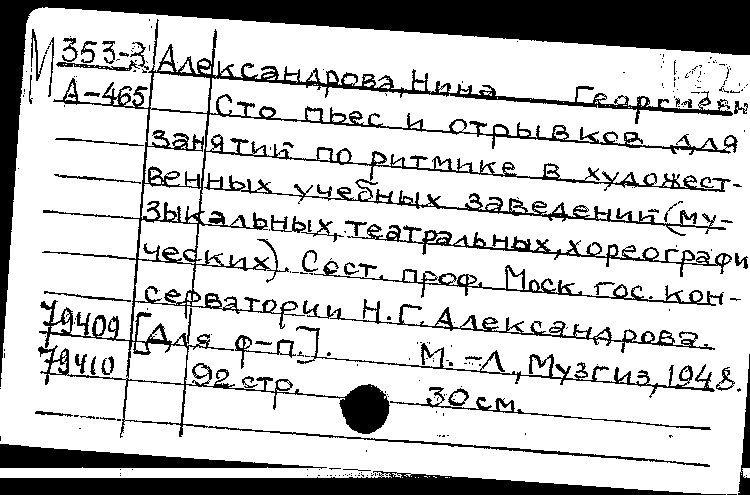 М 353-3 Александрова, Нина Георгиевн
А-465 Сто пьес и отрывков для
занятий по ритмике в художест-
венных учебных заведений (му-
зыкальных, театральных, хореографи
ческих). Сост. проф. Моск. гос. кон-
серватории Н.Г. Александрова.
79409 [Для ф-п.]. М.-Л., Музгиз, 1948.
79410 92 стр. 30 см.